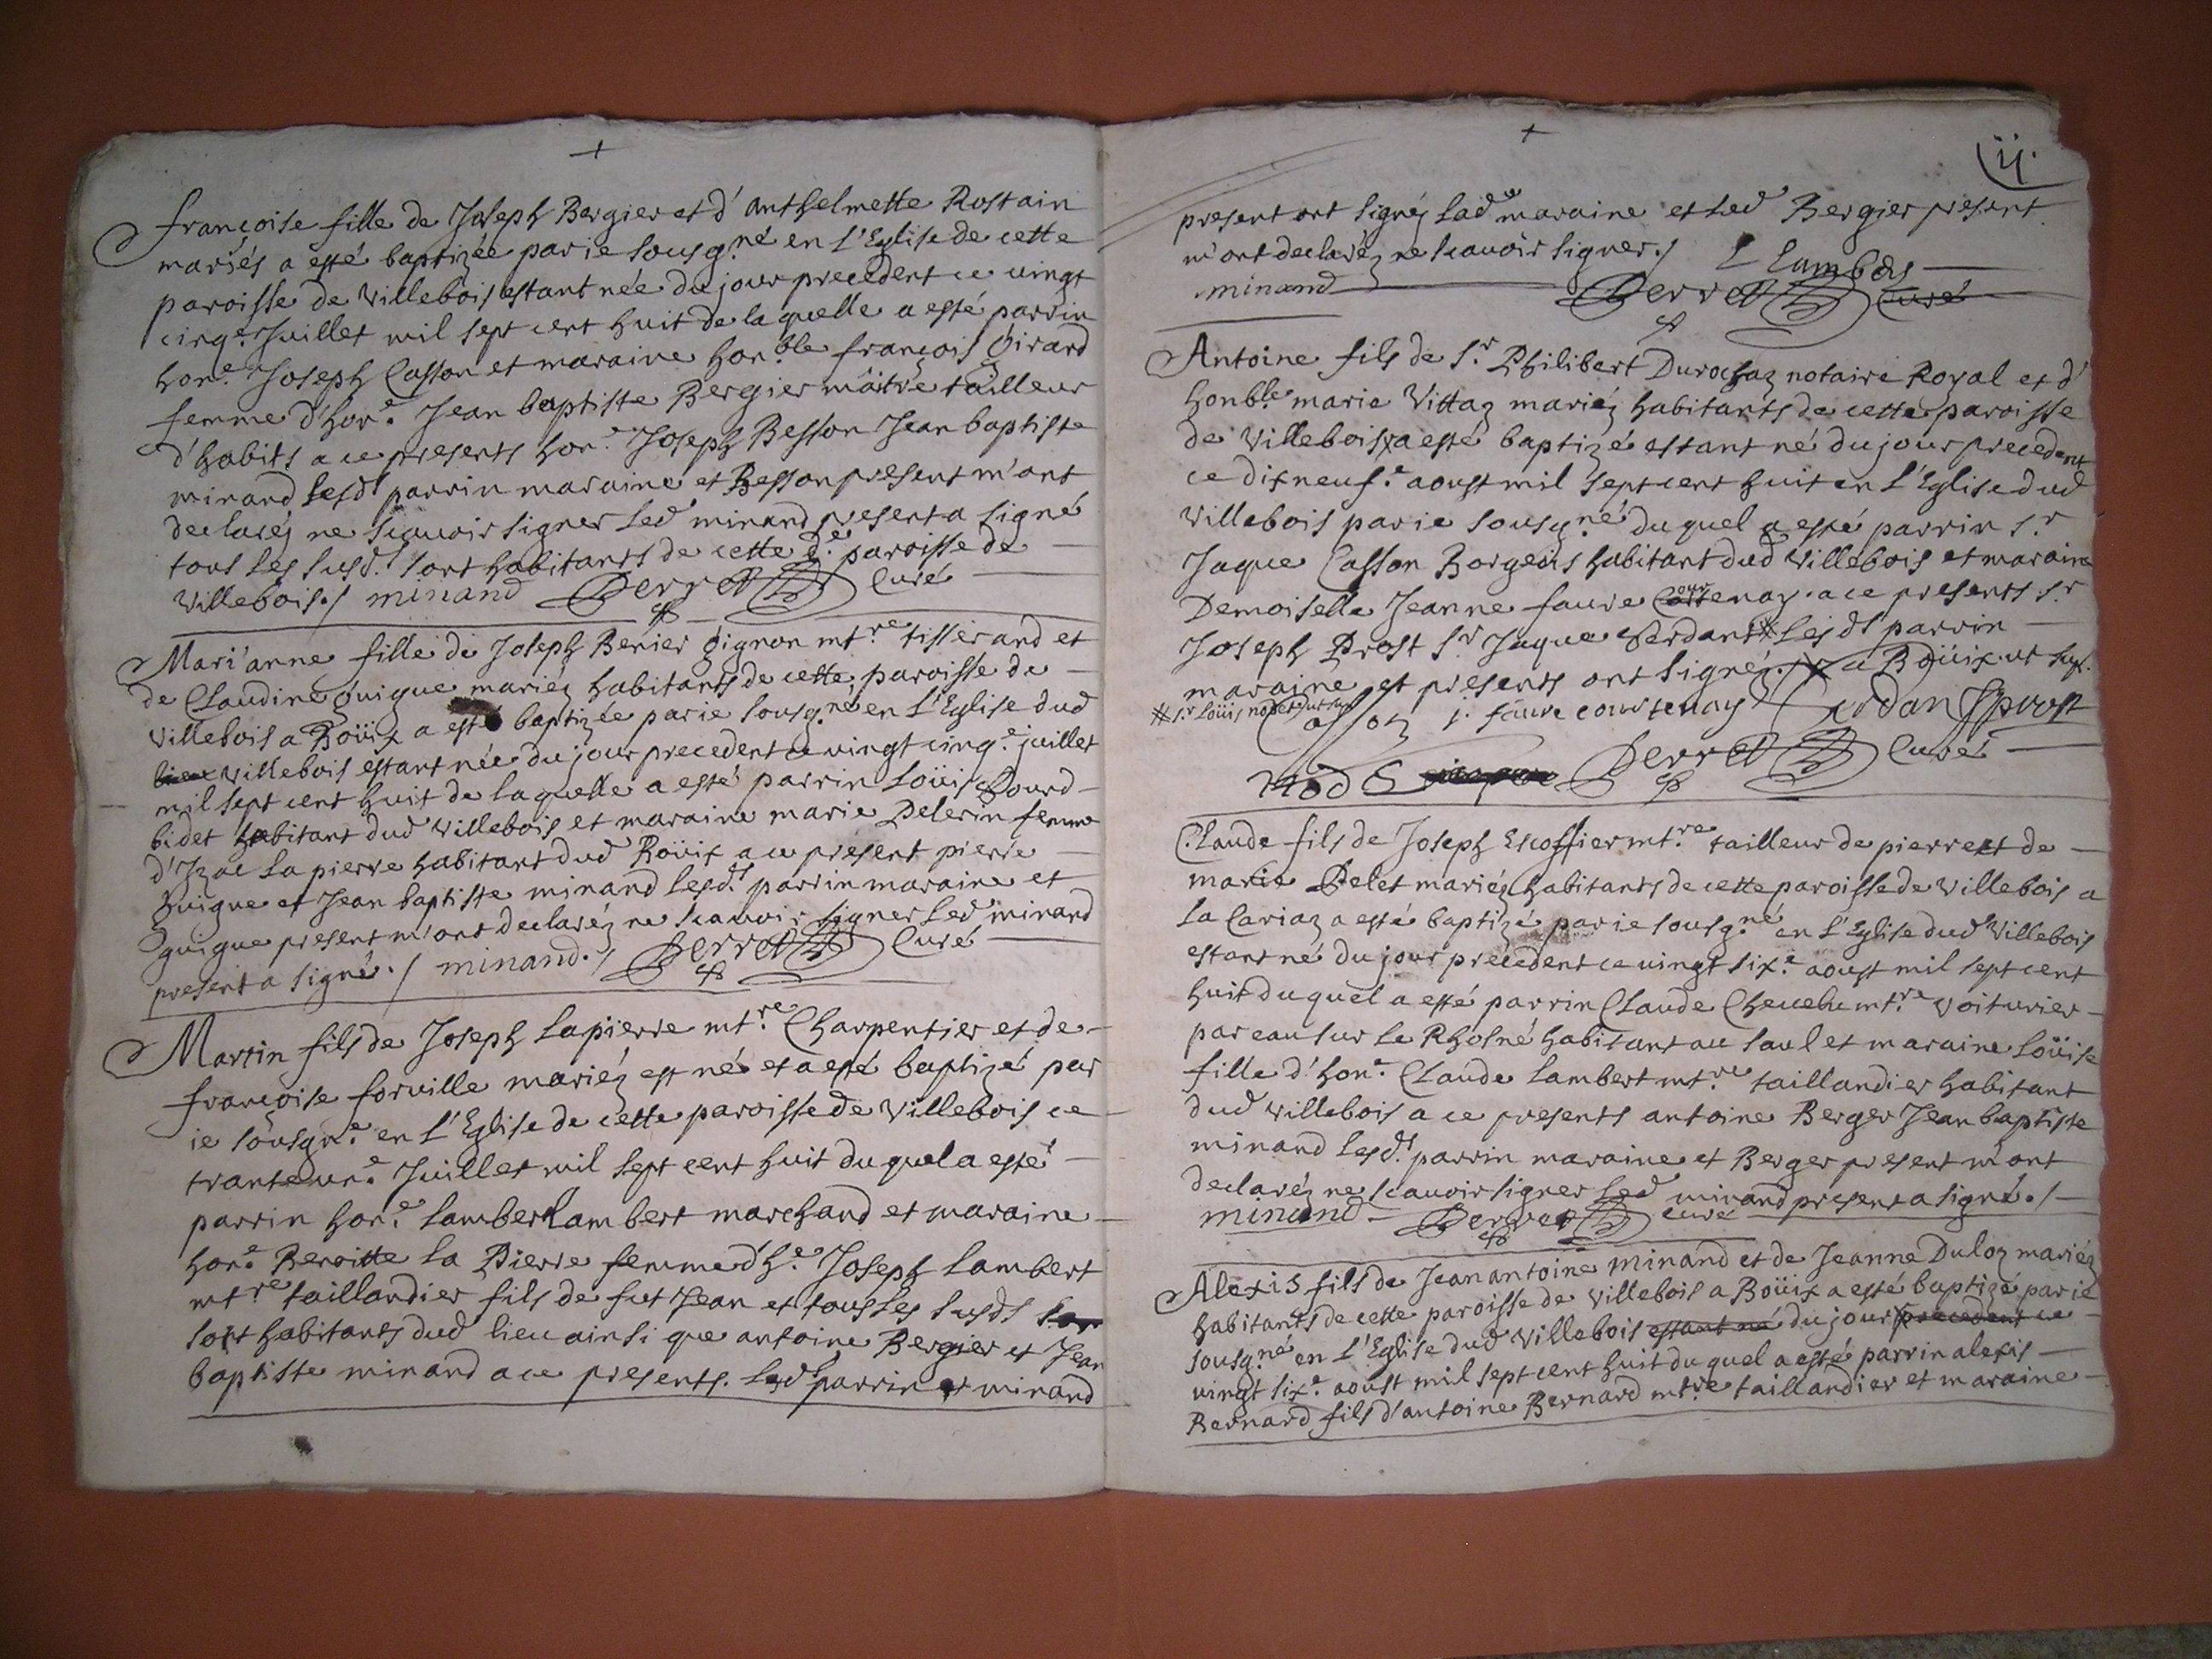 +
françoise fille de Joseph Bergier et d'anthelmette Rostain
mariés a esté baptizée par ie sousg.né en l'Eglise de cette
paroisse de Villebois estant née du jour precedent ce uingt
cinq.e Juillet mil sept cent huit de laquelle a esté parrin
hon.e Joseph Casson et maraine hon.ble françois Girard
femme d'hon.e Jean baptiste Bergier maitre tailleur
d'habits a ce presents hon.e Joseph Besson Jean baptiste
minand lesd.s parrin maraine et Besson present m'ont
declaréz ne scauoir signer led minand present a signé
tous les susd.s sont habitants de cette d.e paroisse de
Villebois./ minand Perret Curé
Mari'anne fille de Joseph Benier Gignon mt.re tisserand et
de Claudine guigue mariéz habitants de cette paroisse de
Villebois a Boüix a esté baptizée par ie sousg.né en l'Eglise dud
villebois estant née du jour precedent ce uingt cinq.e juillet
mil sept cent huit de laquelle a esté parrin Loüis Bourd-
bidet habitant dud Villebois et maraine marie Pelerin femme
d'Izac La pierre habitant dud Boüix a ce present pierre
guigue et Jean baptiste minand lesd.s parrin maraine et
guigue present m'ont declaréz ne scauoir signer led minand
present a signé./ minand./ Perret Curé
Martin fils de Joseph Lapierre mt.re Charpentier et de
françoise forville mariéz est né et a esté baptizé par
ie sousgn.e en l'Eglise de cette paroisse de Villebois ce
trante un.e Juillet mil sept cent huit du quel a esté
parrin hon.e Lambert Lambert marchand et maraine
hon.e Benoitte La Pierre femme d'h.e Joseph Lambert
mt.re taillandier fils de fut Jean et tous les susds
sont habitants dud lieu ainsi que antoine Bergier et Jean
baptiste minand a ce presents. Lesd.s parrin et minand
+
ij.
present ont signéz lad.e maraine et led Bergier present
m'ont declaréz ne scauoir signer./ L Lambert
minand Perret Curé
Antoine fils de S.r Philibert Durochaz notaire Royal et d'
honb.le marie Vittaz mariéz habitants de cette paroisse
de Villebois a esté baptizé estant né du jour precedent
ce dixneuf.e aoust mil sept cent huit en l'Eglise dud
Villebois par ie sousg.né du quel a esté parrin s.r
Jaque Casson Borgeois habitant dud Villebois et maraine
Demoiselle Jeanne faure Courtenay. a ce presents s.r
Joseph Prost S.r Jaque Verdant # Lesd.s parrin
maraine et presents ont signéz./ a Boüix
# s.r Loüis
Casson j. faure courtenay Verdan JProst
Perret Curé
Claude fils de Joseph Escoffier mt.re tailleur de pierre et de
marie Pelet mariéz habitants de cette paroisse de Villebois a
la Cariaz a esté baptizé par ie sousg.né en l'Eglise dud Villebois
estant né du jour precedent ce uingt six.e aoust mil sept cent
huit du quel a esté parrin Claude Cheuelu mt.re voiturier
par eau sur le Rhosne habitant au Saul et maraine Loüise
fille d'hon.e Claude Lambert mt.re taillandier habitant
dud Villebois a ce presents antoine Berger Jean baptiste
minand lesd.s parrin maraine et Berger present m'ont
declaréz ne scauoir signer led minand present a signé./
minand Perret curé
Alexis fils de Jean antoine minand et de Jeanne Duloz mariéz
habitants de cette paroisse de Villebois a Boüix a esté baptizé par ie
sousg.né en l'Eglise dud Villebois estant né du jour precedent ce
uingt six.e aoust mil sept cent huit du quel a esté parrin alexis
Bernard fils d'antoine Bernard mt.re taillandier et maraine